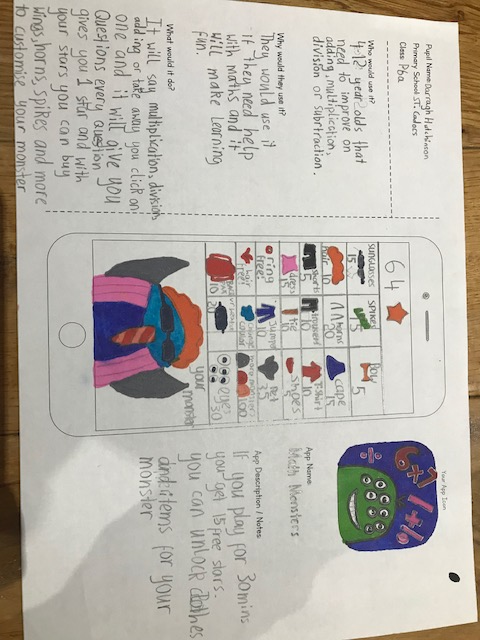 Pupil Name: Darragh Hutchinson
Primary School: ST. Cadocs
Class: P6a
Who would use it?
4-12 year olds that
need to improve on
adding, multiplication,
division or subrtraction.
Why would they use it?
They would use it
if they need help
with maths and it
will make learning
fun.
What would it do?
It will say multiplication, division
adding or take away you click on
one and it will give you
Questions every question
gives you 1 star and with
your stars you can buy
wings, horns spikes and more
to customise your monster
64
sunglasses
15
spikes
15
Bow
5
hair 10
horns
20
cape
15
shorts
5
trousers
10
T-shirt
10
dress
15
tie
10
shoes
5
ring
free!
jump
10
pet
25
hair
free!
change
colour
100
10
20
eyes
30
your
monster
Your App Icon
6+7
1+1
÷
App Name:
Math Monsters
App Description / Notes:
If you play for 30mins
you get 15 free stars.
you can unlock clothes
and items for your
monster